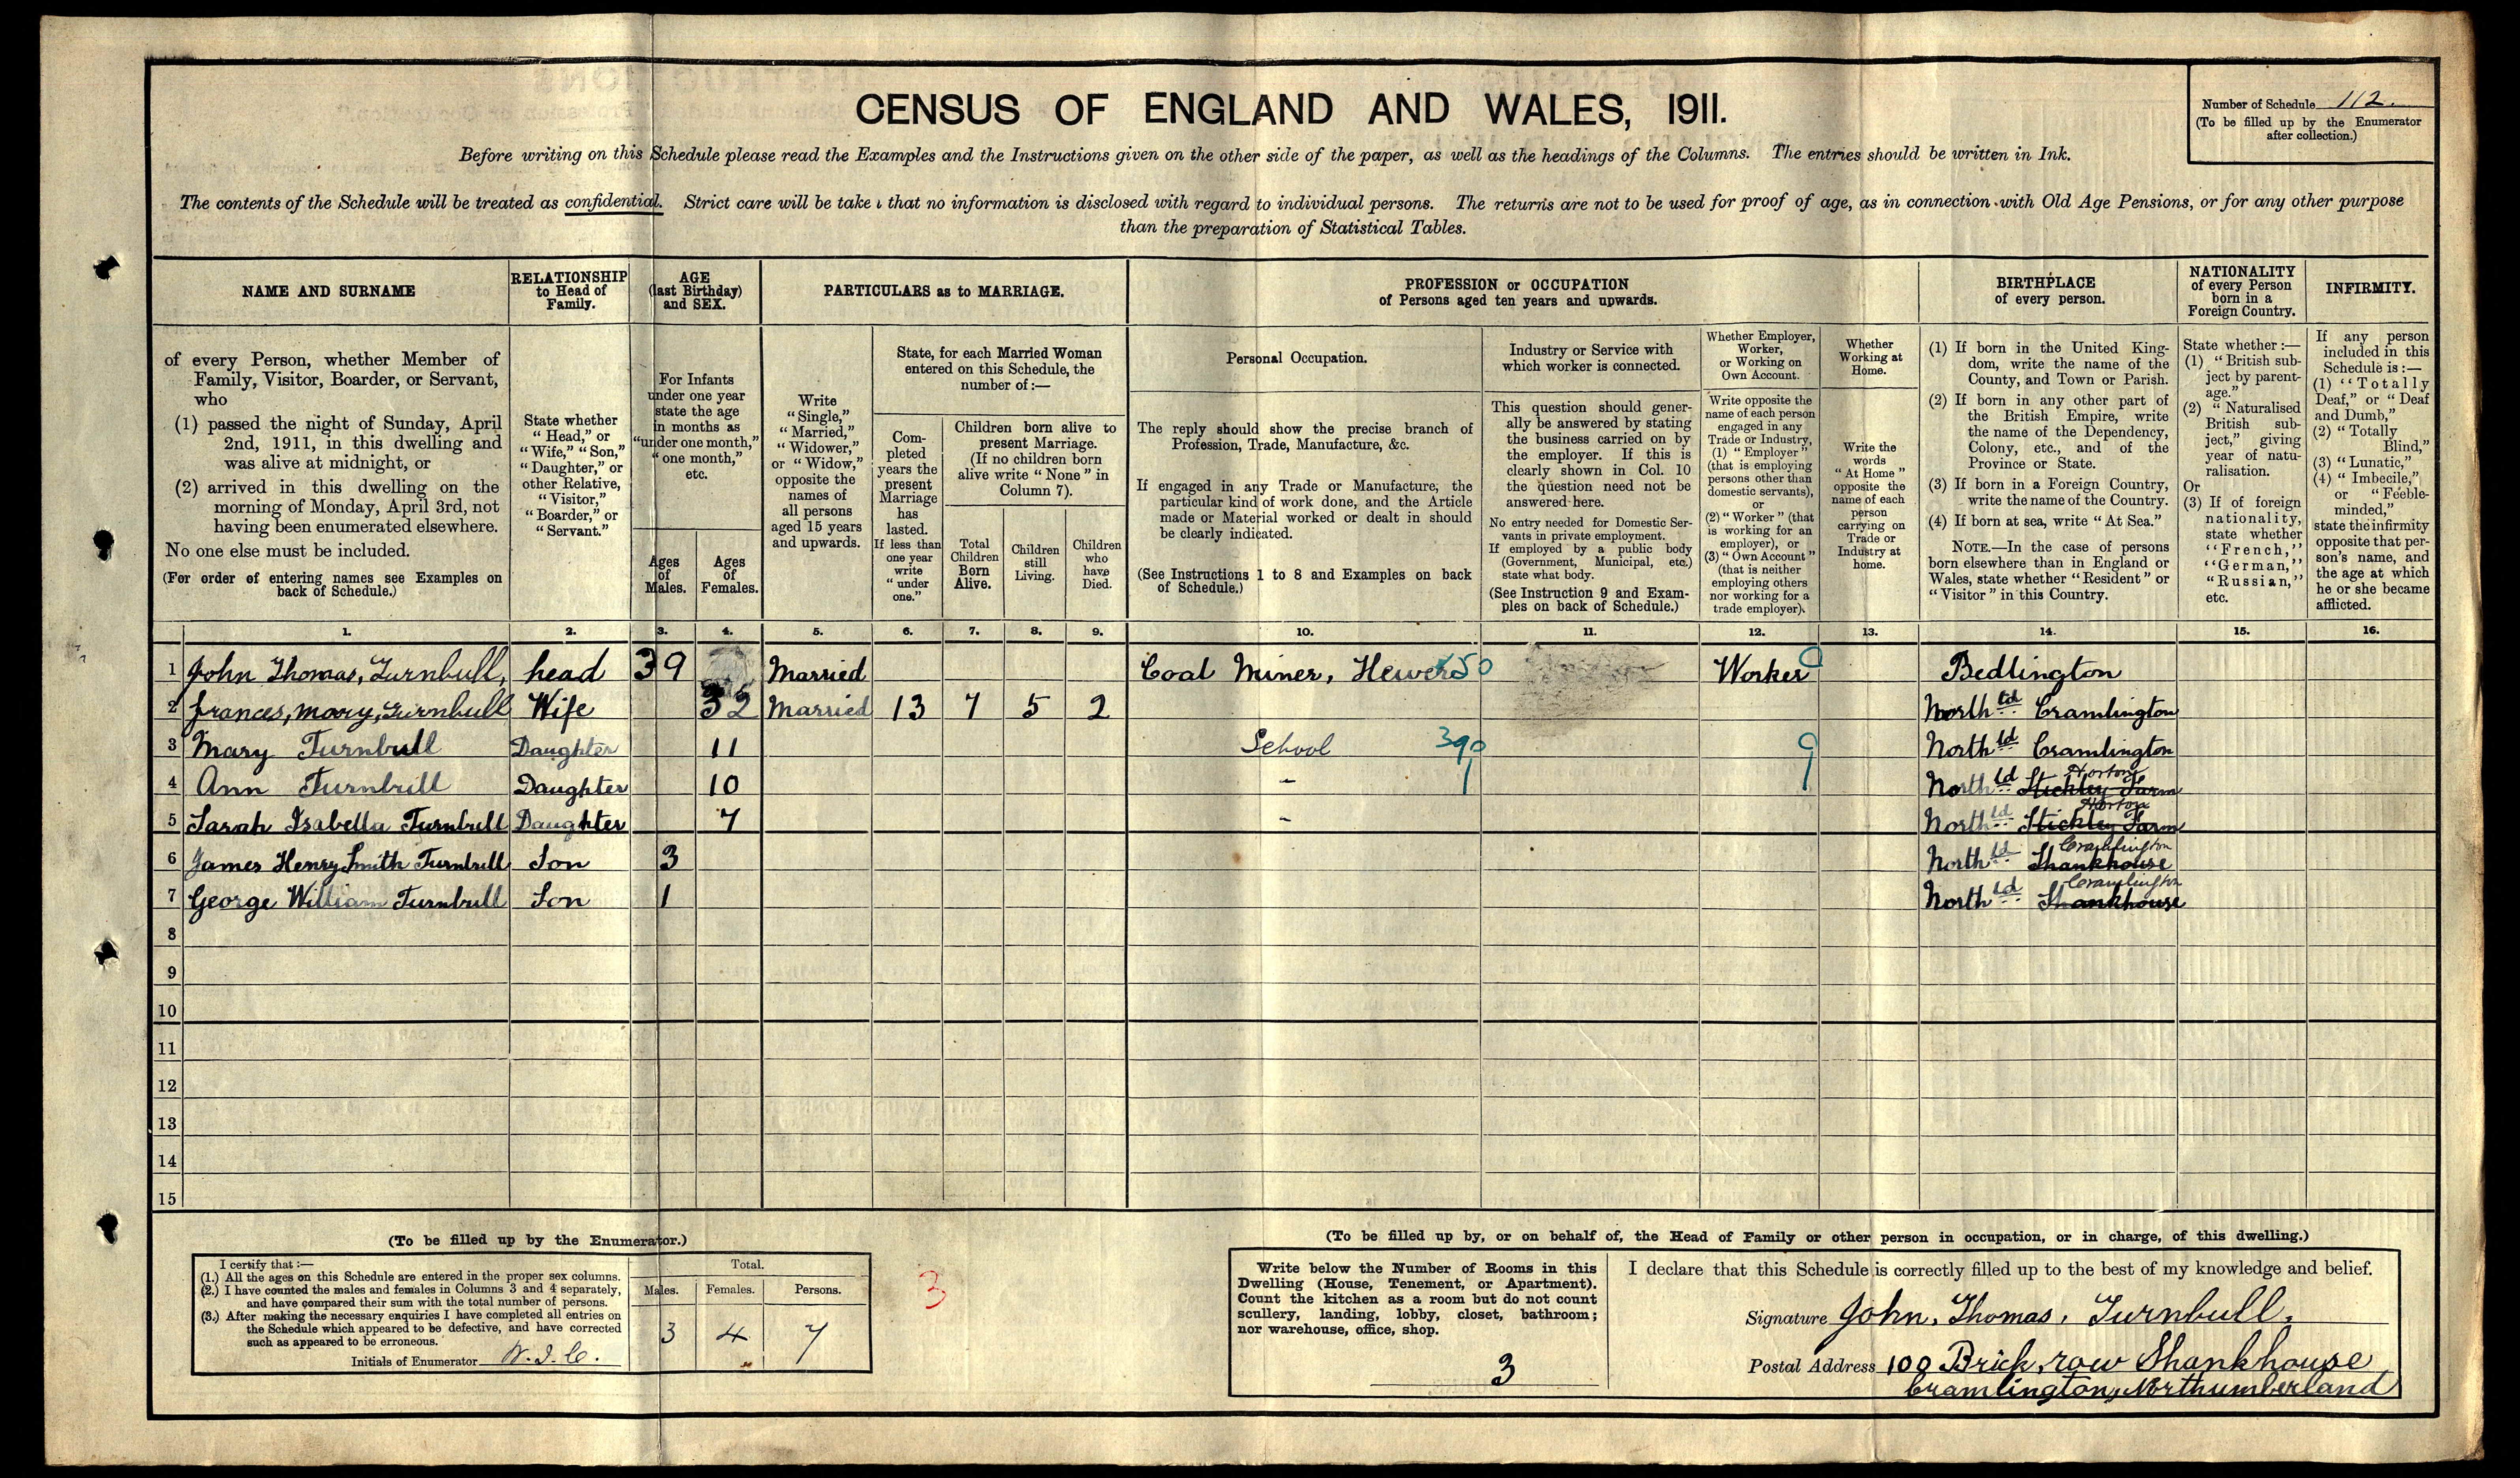 CENSUS OF ENGLAND AND WALES, 1911.
Number of Schedule 112.
(To be filled up by the Enumerator
after collection.)
Before writing on this Schedule please read the Examples and the Instructions given on the other side of the paper, as well as the headings of the Columns. The entries should be written in Ink.
The contents of the Schedule will be treated as confidential. Strict care will be take that no information is disclosed with regard to individual persons. The returns are not to be used for proof of age, as in connection with Old Age Pensions, or for any other purpose
than the preparation of Statistical Tables.
NAME AND SURNAME
RELATIONSHIP
to Head of
Family.
AGE
(last Birthday)
and SEX.
PARTICULARS as to MARRIAGE.
PROFESSION or OCCUPATION
of Persons aged ten years and upwards.
BIRTHPLACE
of every person.
NATIONALITY
of every Person
born in a
Foreign Country.
INFIRMITY.
of every Person, whether Member of
Family, Visitor, Boarder, or Servant,
who
(1) passed the night of Sunday, April
2nd, 1911, in this dwelling and
was alive at midnight, or
(2) arrived in this dwelling on the
morning of Monday, April 3rd, not
having been enumerated elsewhere.
No one else must be included.
(For order of entering names see Examples on
back of Schedule.)
State whether
"Head," or
"Wife," "Son,"
"Daughter," or
other Relative,
"Visitor,"
"Boarder," or
"Servant."
For Infants
under one year
state the age
in months as
"under one month,"
"one month,"
etc.
Ages
of
Males.
Ages
of
Females.
Write
"Single,"
"Married,"
"Widower,"
or "Widow,"
opposite the
names of
all persons
aged 15 years
and upwards.
State, for each Married Woman
entered on this Schedule, the
number of:—
Com-
pleted
years the
present
Marriage
has
lasted.
If less than
one year
write
"under
one."
Children born alive to
present Marriage.
(If no children born
alive write "None" in
Column 7).
Total
Children
Born
Alive.
Children
still
Living.
Children
who
have
Died.
Personal Occupation.
The reply should show the precise branch of
Profession, Trade, Manufacture, &c.
If engaged in any Trade or Manufacture, the
particular kind of work done, and the Article
made or Material worked or dealt in should
be clearly indicated.
(See Instructions 1 to 8 and Examples on back
of Schedule.)
Industry or Service with
which worker is connected.
This question should gener-
ally be answered by stating
the business carried on by
the employer. If this is
clearly shown in Col. 10
the question need not be
answered here.
No entry needed for Domestic Ser-
vants in private employment.
If employed by a public body
(Government, Municipal, etc.)
state what body.
(See Instruction 9 and Exam-
ples on back of Schedule.)
Whether Employer,
Worker,
or Working on
Own Account.
Write opposite the
name of each person
engaged in any
Trade or Industry,
(1) "Employer"
(that is employing
persons other than
domestic servants),
or
(2) "Worker" (that
is working for an
employer), or
(3) "Own Account"
(that is neither
employing others
nor working for a
trade employer).
Whether
Working at
Home.
Write the
words
"At Home"
opposite the
name of each
person
carrying on
Trade or
Industry at
home.
(1) If born in the United King-
dom, write the name of the
County, and Town or Parish.
(2) If born in any other part of
the British Empire, write
the name of the Dependency,
Colony, etc., and of the
Province or State.
(3) If born in a Foreign Country,
write the name of the Country.
(4) If born at sea, write "At Sea."
NOTE.—In the case of persons
born elsewhere than in England or
Wales, state whether "Resident" or
"Visitor" in this Country.
State whether:—
(1) "British sub-
ject by parent-
age."
(2) "Naturalised
British sub-
ject," giving
year of natu-
ralisation.
Or
(3) If of foreign
nationality,
state whether
"French,"
"German,"
"Russian,"
etc.
If any person
included in this
Schedule is:—
(1) "Totally
Deaf," or "Deaf
and Dumb,"
(2) "Totally
Blind,"
(3) "Lunatic,"
(4) "Imbecile,"
or "Feeble-
minded,"
state the infirmity
opposite that per-
son's name, and
the age at which
he or she became
afflicted.
1. 2. 3. 4. 5. 6. 7. 8. 9. 10. 11. 12. 13. 14. 15. 16.
1 John Thomas, Turnbull, head 39 Married Coal Miner, Hewer 50 Worker 0 Bedlington
2 Frances, Mary, Turnbull Wife 32 Married 13 7 5 2 North td Cramlington
3 Mary Turnbull Daughter 11 School 390 9 North ld Cramlington
4 Ann Turnbull Daughter 10 - 1 1 North ld Stickley Farm Horton
5 Sarah Isabella Turnbull Daughter 7 - North ld Stickley Farm Horton
6 James Henry Smith Turnbull Son 3 North ld Shankhouse Cramlington
7 George William Turnbull Son 1 North ld Shankhouse Cramlington
8
9
10
11
12
13
14
15
(To be filled up by the Enumerator.)
I certify that:—
(1.) All the ages on this Schedule are entered in the proper sex columns.
(2.) I have counted the males and females in Columns 3 and 4 separately,
and have compared their sum with the total number of persons.
(3.) After making the necessary enquiries I have completed all entries on
the Schedule which appeared to be defective, and have corrected
such as appeared to be erroneous.
Initials of Enumerator
Total.
Males. Females. Persons.
3 4 7
3
(To be filled up by, or on behalf of, the Head of Family or other person in occupation, or in charge, of this dwelling.)
Write below the Number of Rooms in this
Dwelling (House, Tenement, or Apartment).
Count the kitchen as a room but do not count
scullery, landing, lobby, closet, bathroom;
nor warehouse, office, shop.
3
I declare that this Schedule is correctly filled up to the best of my knowledge and belief.
Signature John, Thomas, Turnbull,
Postal Address 100 Brick, row Shankhouse
Cramlington, Northumberland